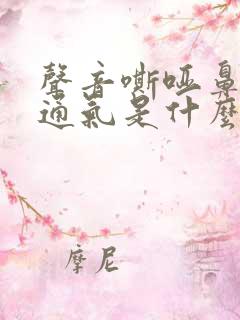 聲音嘶啞鼻
通氣是什麼
摩尼